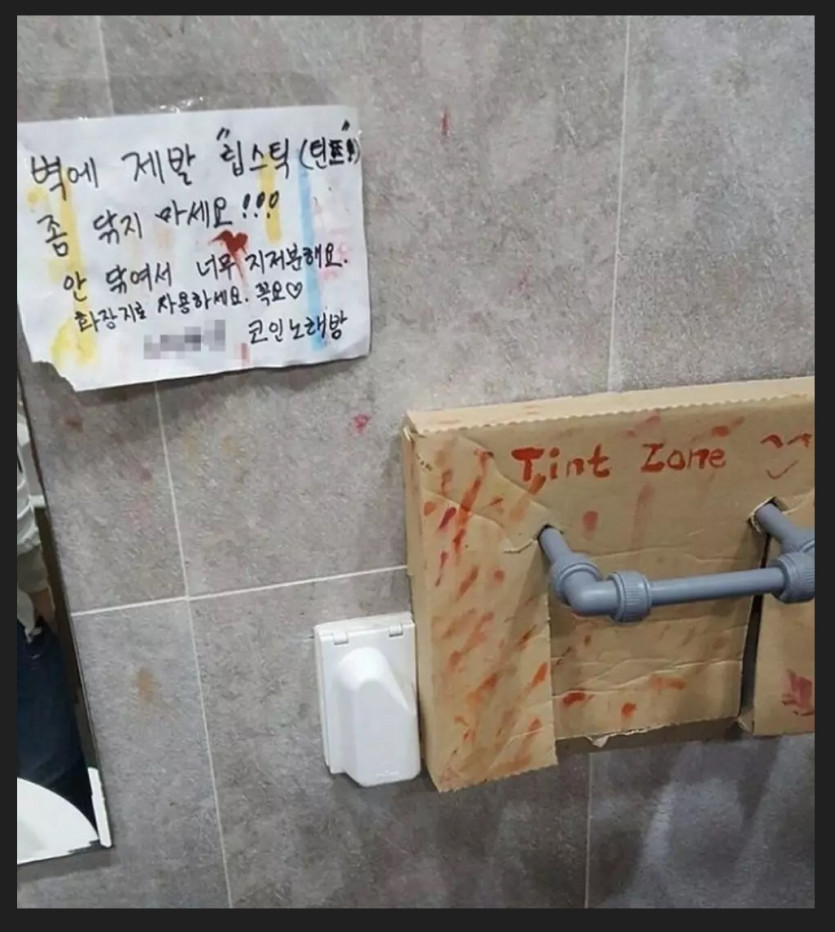 벽에 제발 "립스틱(틴트!)"
좀 닦지 마세요!!!
안 닦여서 너무 지저분해요.
화장지로 사용하세요. 꼭요♡
코인노래방
Tint Zone ^^